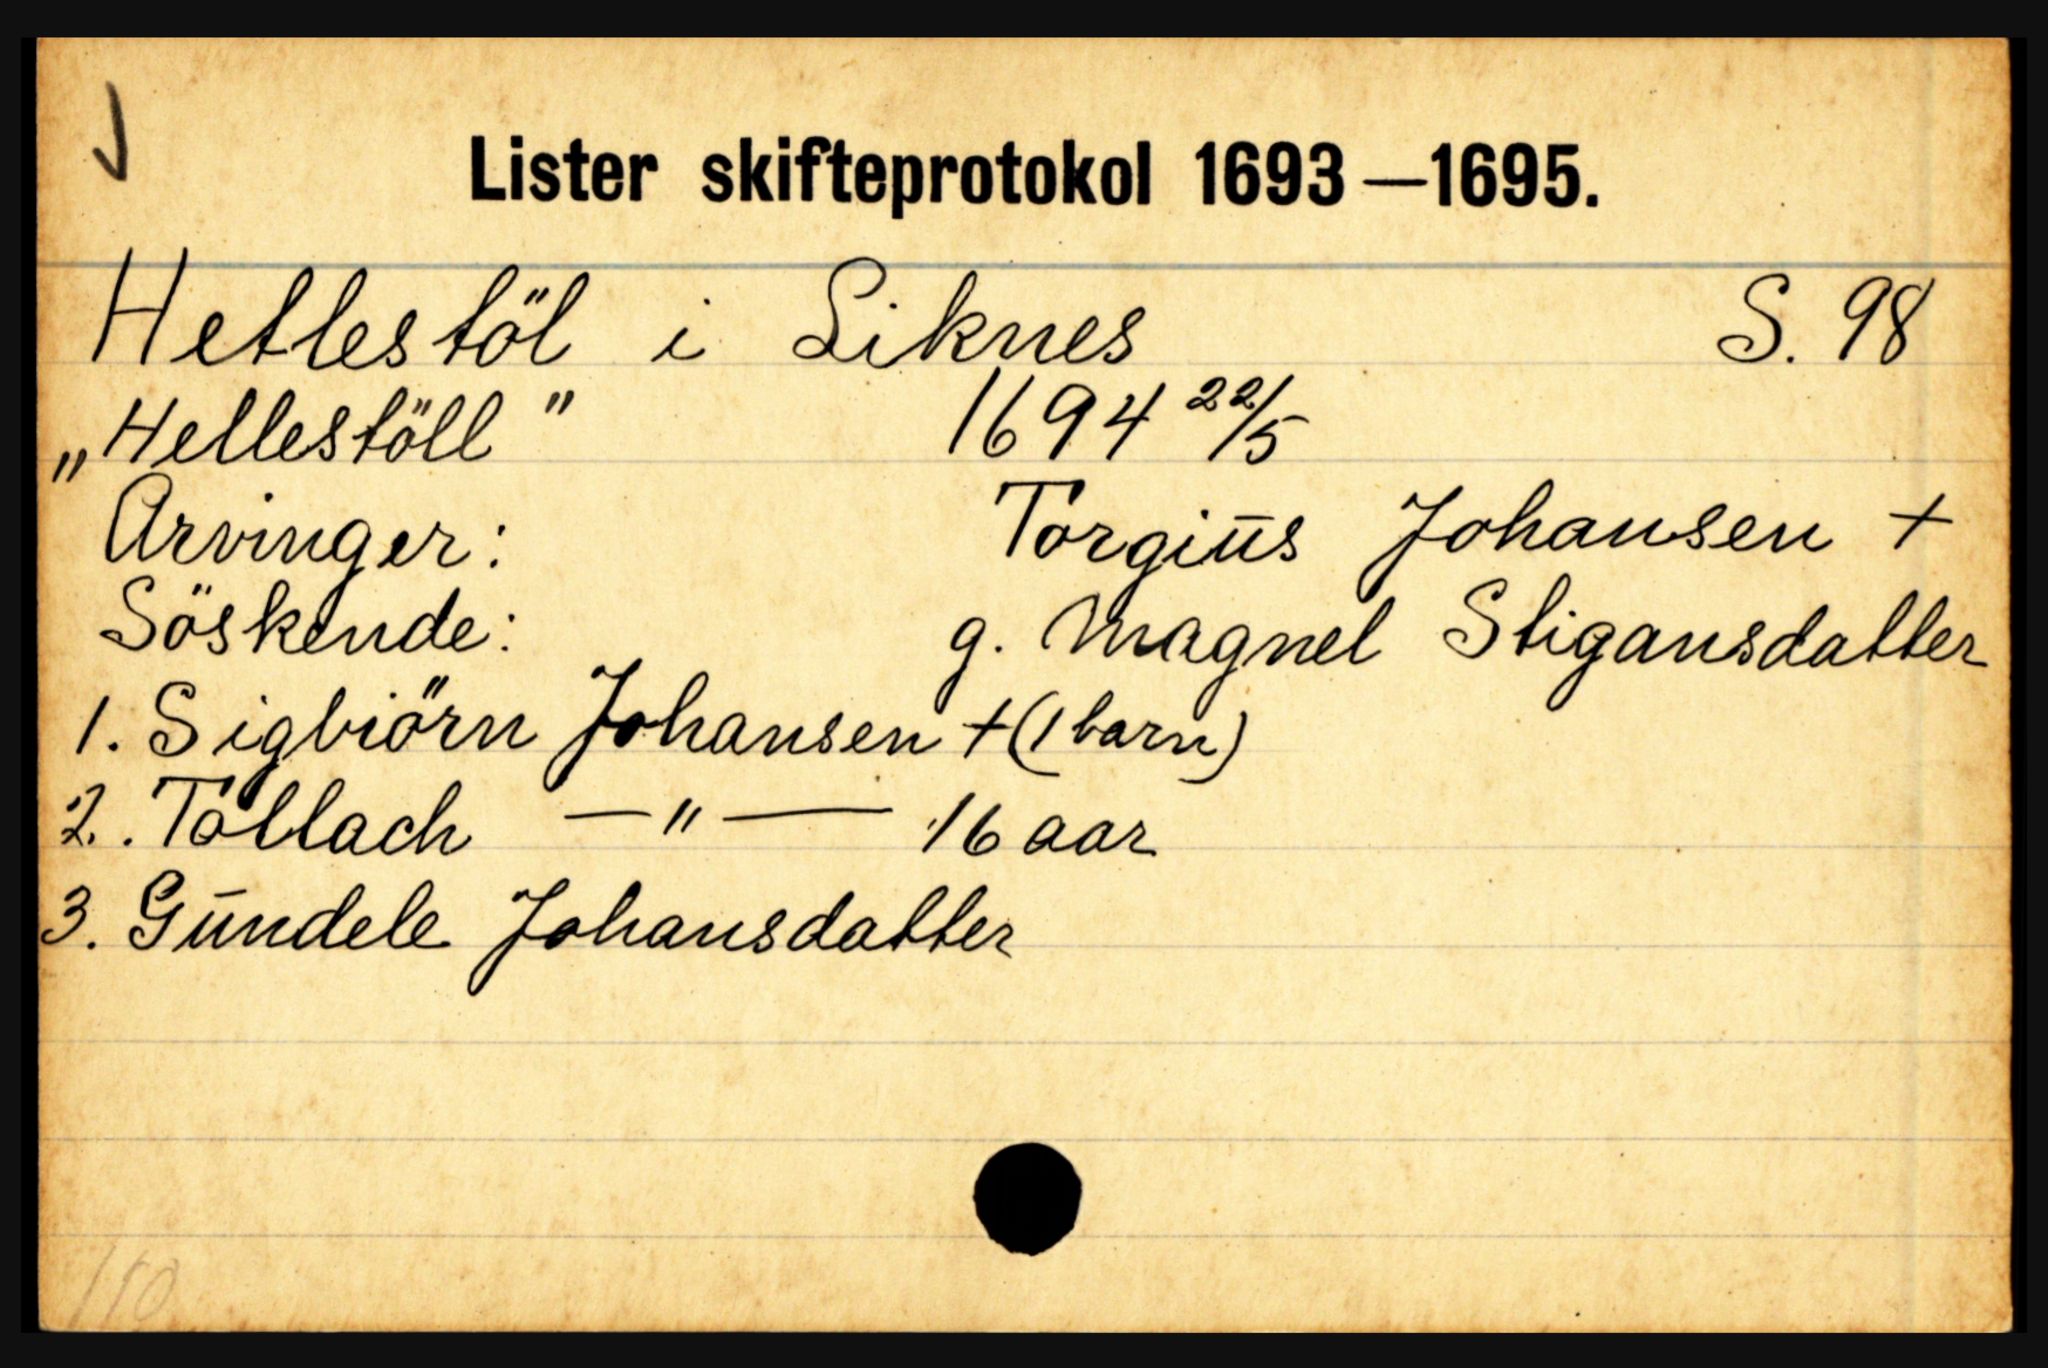 Lister skifteprotokol 1693—1695.
Hetlestöl i Liknes S. 98
„Hellestöll" 1694 22/5
Arvinger: Torgius Johansen +
Söskende: g. Magnel Stigansdatter
1. Sigbiörn Johansen + (1 barn)
2. Tollach —"— 16 aar
3. Gundele Johansdatter
110